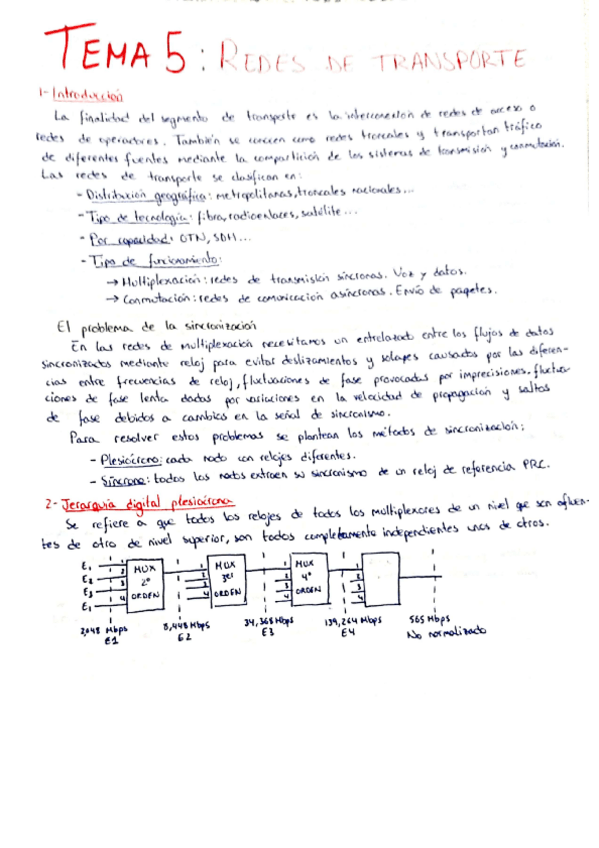 TEMA 5: REDES DE TRANSPORTE
1- Introducción
La finalidad del segmento de transporte es la interconexión de redes de acceso o
redes de operadores. También se conocen como redes troncales y transportan tráfico
de diferentes fuentes mediante la compartición de los sistemas de transmisión y conmutación.
Las redes de transporte se clasifican en:
- Distribución geográfica: metropolitanas, troncales nacionales...
- Tipo de tecnología: fibra, radioenlaces, satélite...
- Por capacidad: OTN, SDH...
- Tipo de funcionamiento:
→ Multiplexación: redes de transmisión síncronas. Voz y datos.
→ Conmutación: redes de comunicación asíncronas. Envío de paquetes.
El problema de la sincronización
En las redes de multiplexación necesitamos un entrelazado entre los flujos de datos
sincronizados mediante reloj para evitar deslizamientos y solapes causados por las diferen-
cias entre frecuencias de reloj, fluctuaciones de fase provocadas por imprecisiones, fluctua-
ciones de fase lenta dadas por variaciones en la velocidad de propagación y saltos
de fase debidos a cambios en la señal de sincronismo.
Para resolver estos problemas se plantean los métodos de sincronización:
- Plesiócrono: cada nodo con relojes diferentes.
- Síncrono: todos los nodos extraen su sincronismo de un reloj de referencia PRC.
2- Jerarquía digital plesiócrona
Se refiere a que todos los relojes de todos los multiplexores de un nivel que son afluen-
tes de otro de nivel superior, son todos completamente independientes unos de otros.
E1 1 MUX 1 MUX 1 MUX 1
E2 2 2º 2 3er 2 4º 2
E3 3 ORDEN 3 ORDEN 3 ORDEN 3
E1 4 4 4 4
2,048 Mbps 8,448 Mbps 34,368 Mbps 139,264 Mbps 565 Mbps
E1 E2 E3 E4 No normalizado